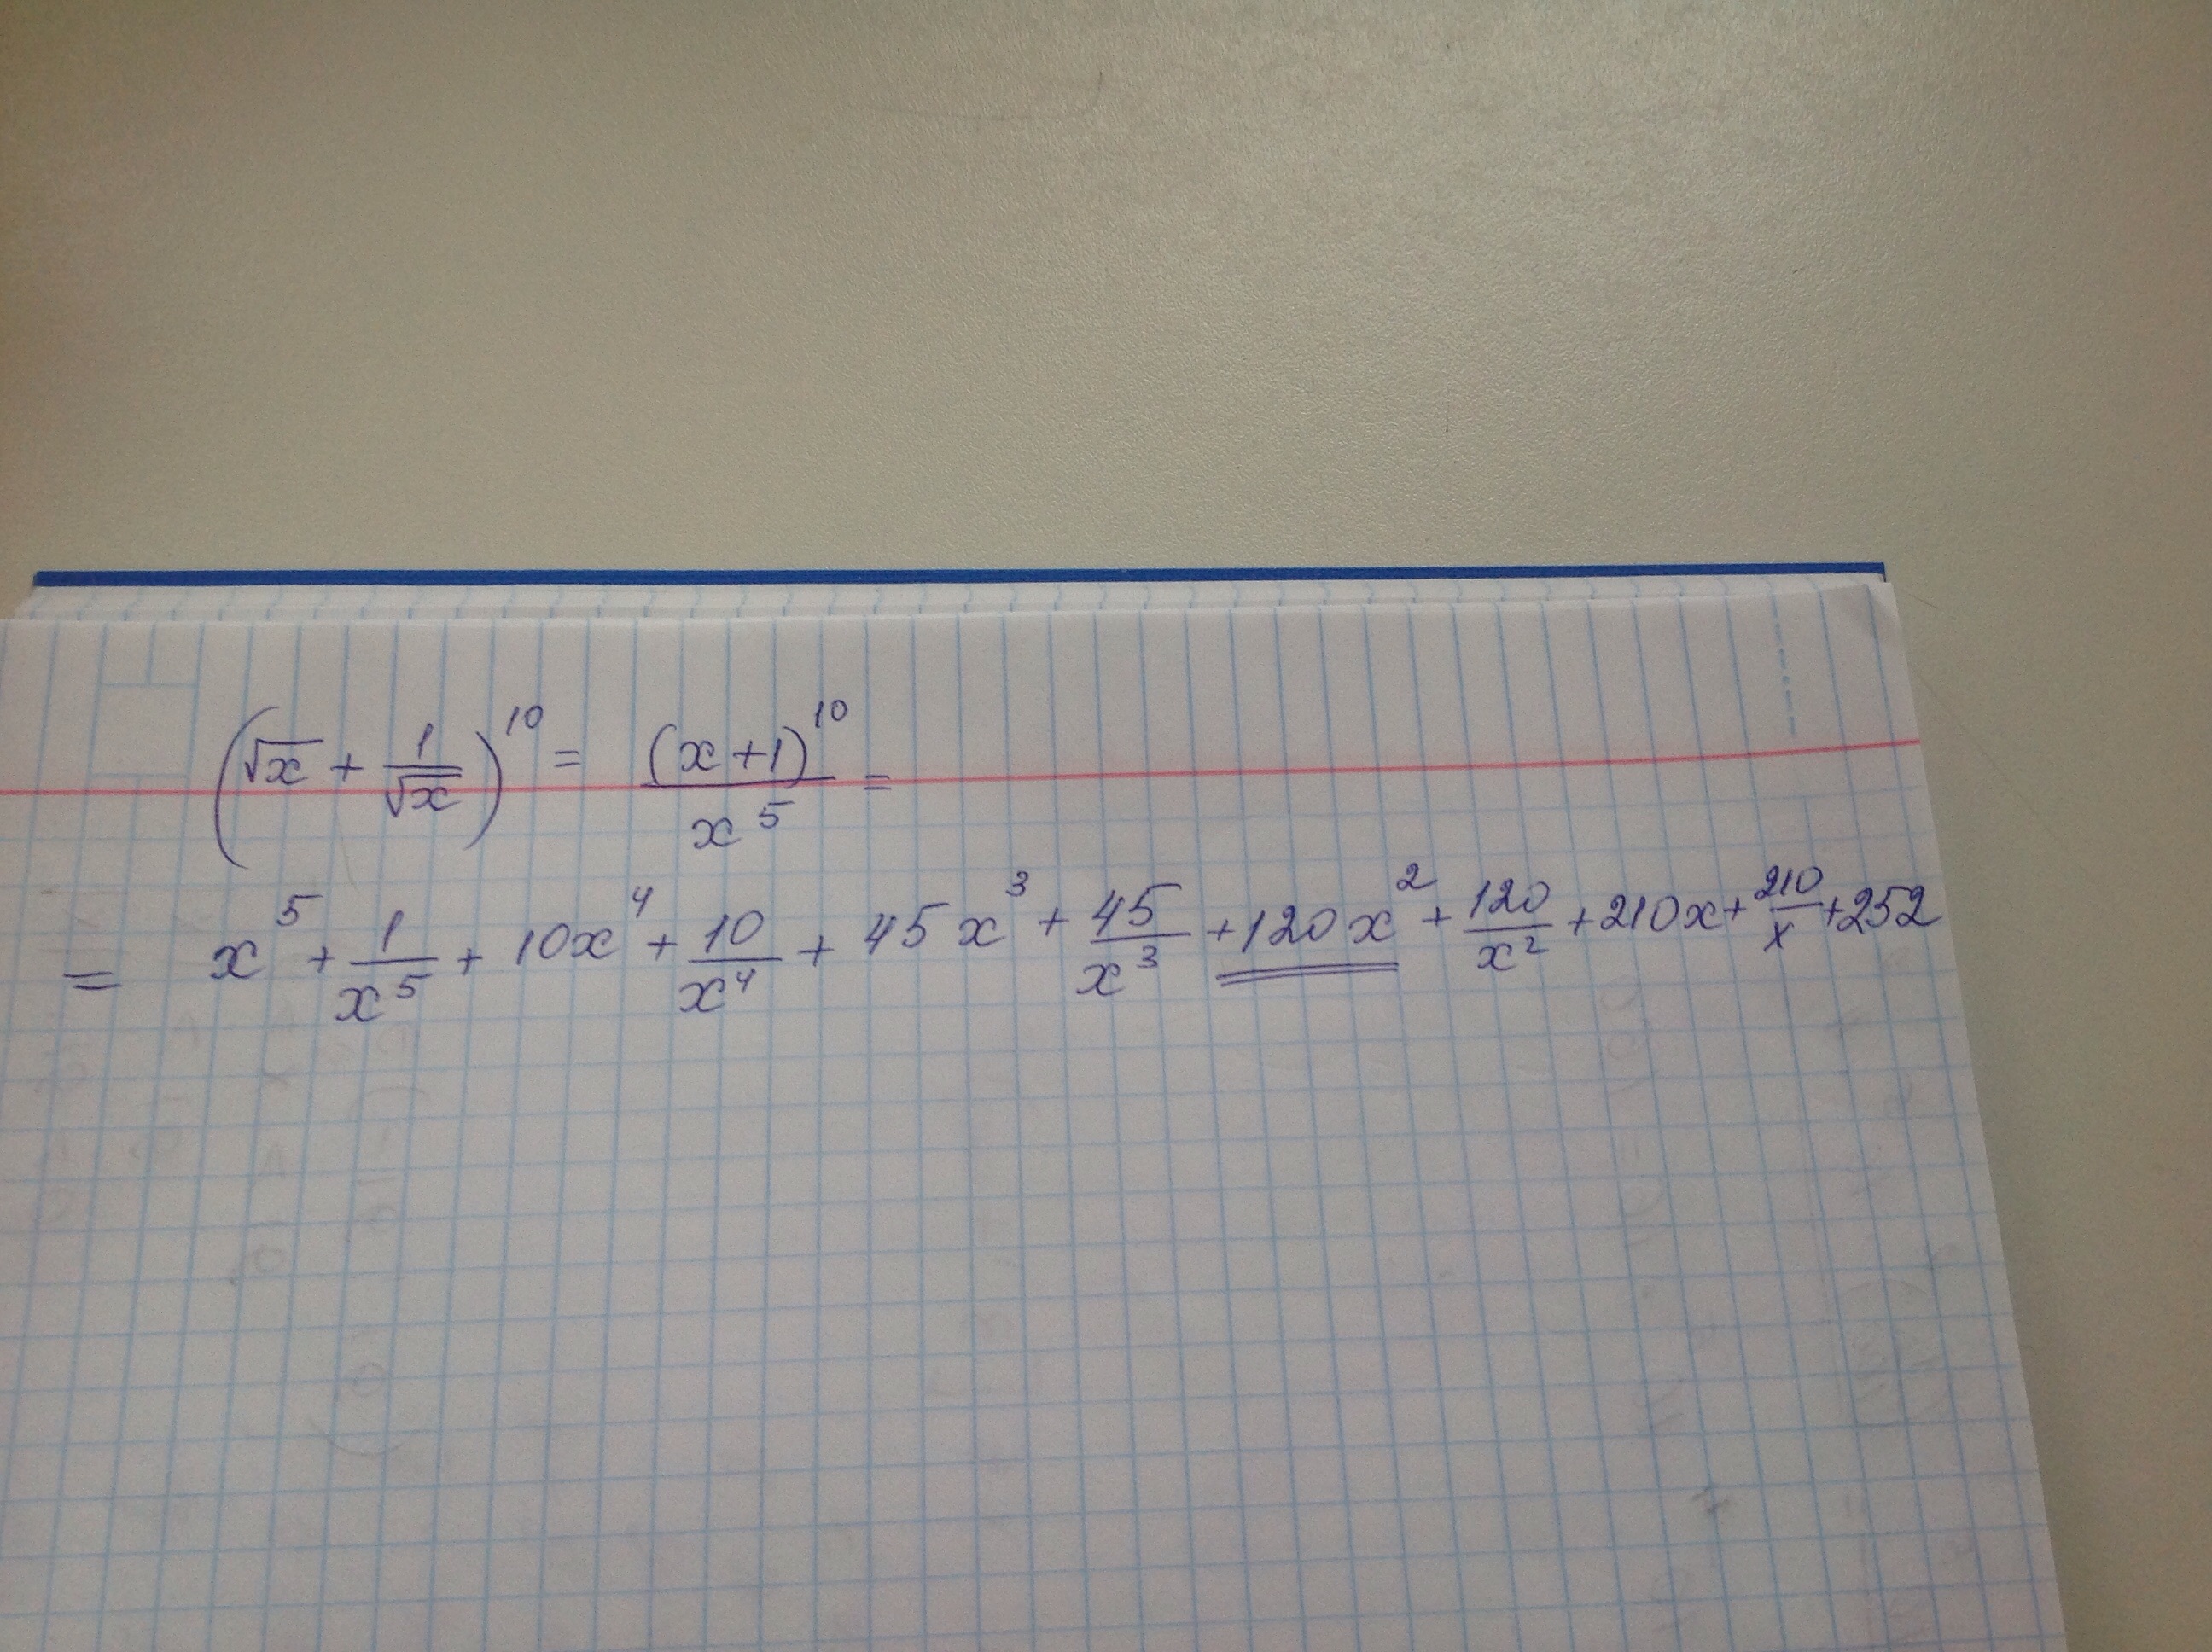 (√x + 1/√x)^10 = (x+1)^10/x^5 =
= x^5 + 1/x^5 + 10x^4 + 10/x^4 + 45x^3 + 45/x^3 + 120x^2 + 120/x^2 + 210x + 210/x + 252